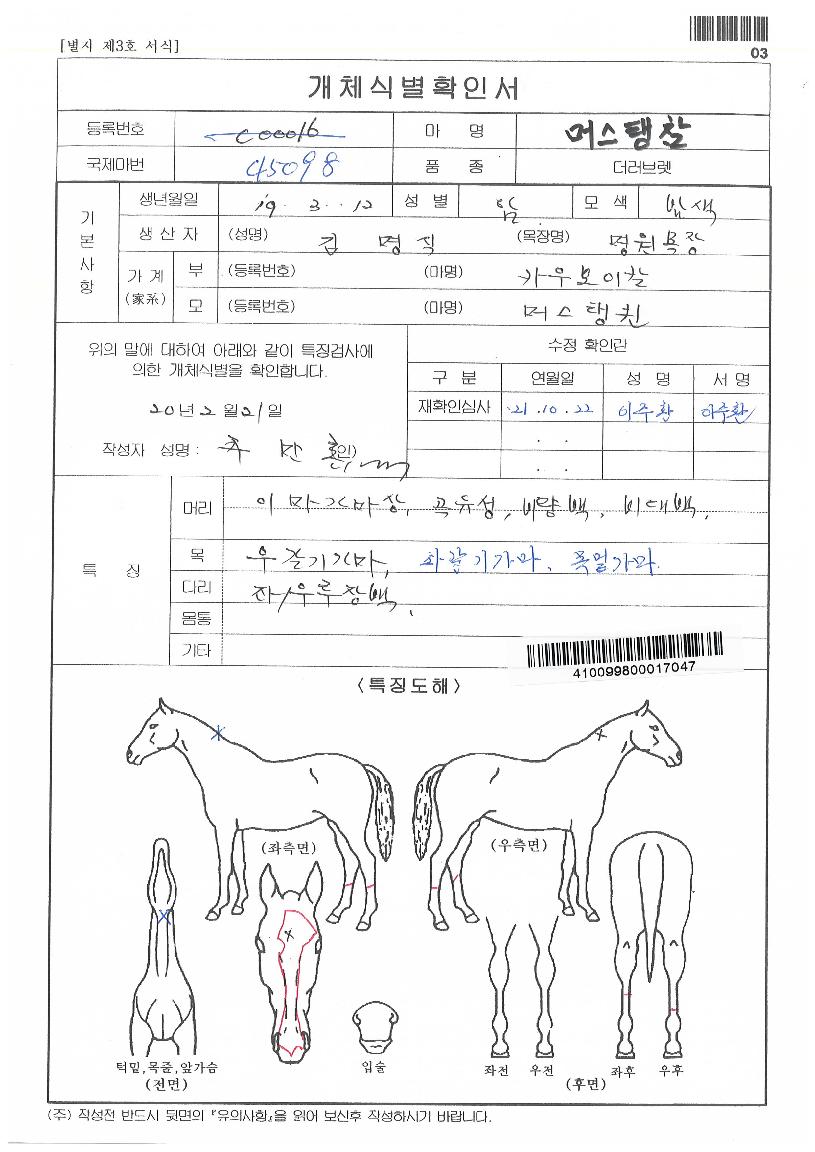 [별지 제3호 서식]
03
개체식별확인서
등록번호 C00016 마 명 머스탱찰
국제마번 45098 품 종 더러브렛
기본사항
생년월일 19. 3. 12 성 별 암 모 색 밤색
생 산 자 (성명) 김 명 식 (목장명) 명원목장
가 계 (家系) 부 (등록번호) (마명) 카우보이찰
모 (등록번호) (마명) 머스탱퀸
위의 말에 대하여 아래와 같이 특징검사에
의한 개체식별을 확인합니다.
20년 2월 21일
작성자 성명 : (인)
수정 확인란
구 분 연월일 성 명 서 명
재확인심사 21. 10. 22 이주환 이주환
특 징
머리 이마가마상, 곡유성, 비량백, 비대백.
목 우갈기가마, 좌갈기가마, 목멀가마.
다리 좌/우후장백,
몸통
기타
410099800017047
<특징도해>
(좌측면)
(우측면)
턱밑,목줄,앞가슴
(전면)
입술
좌전 우전 좌후 우후
(후면)
(주) 작성전 반드시 뒷면의 『유의사항』을 읽어 보신후 작성하시기 바랍니다.